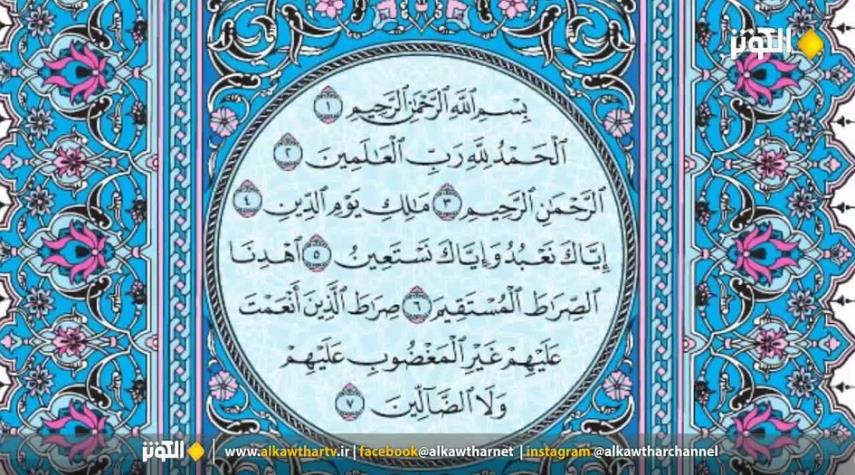 الكوثر
بِسْمِ اللَّهِ الرَّحْمَٰنِ الرَّحِيمِ ١
الْحَمْدُ لِلَّهِ رَبِّ الْعَالَمِينَ ٢
الرَّحْمَٰنِ الرَّحِيمِ ٣ مَالِكِ يَوْمِ الدِّينِ ٤
إِيَّاكَ نَعْبُدُ وَإِيَّاكَ نَسْتَعِينُ ٥ اهْدِنَا
الصِّرَاطَ الْمُسْتَقِيمَ ٦ صِرَاطَ الَّذِينَ أَنْعَمْتَ
عَلَيْهِمْ غَيْرِ الْمَغْضُوبِ عَلَيْهِمْ
وَلَا الضَّالِّينَ ٧
الكوثر | www.alkawthartv.ir | facebook@alkawtharnet | instagram @alkawtharchannel